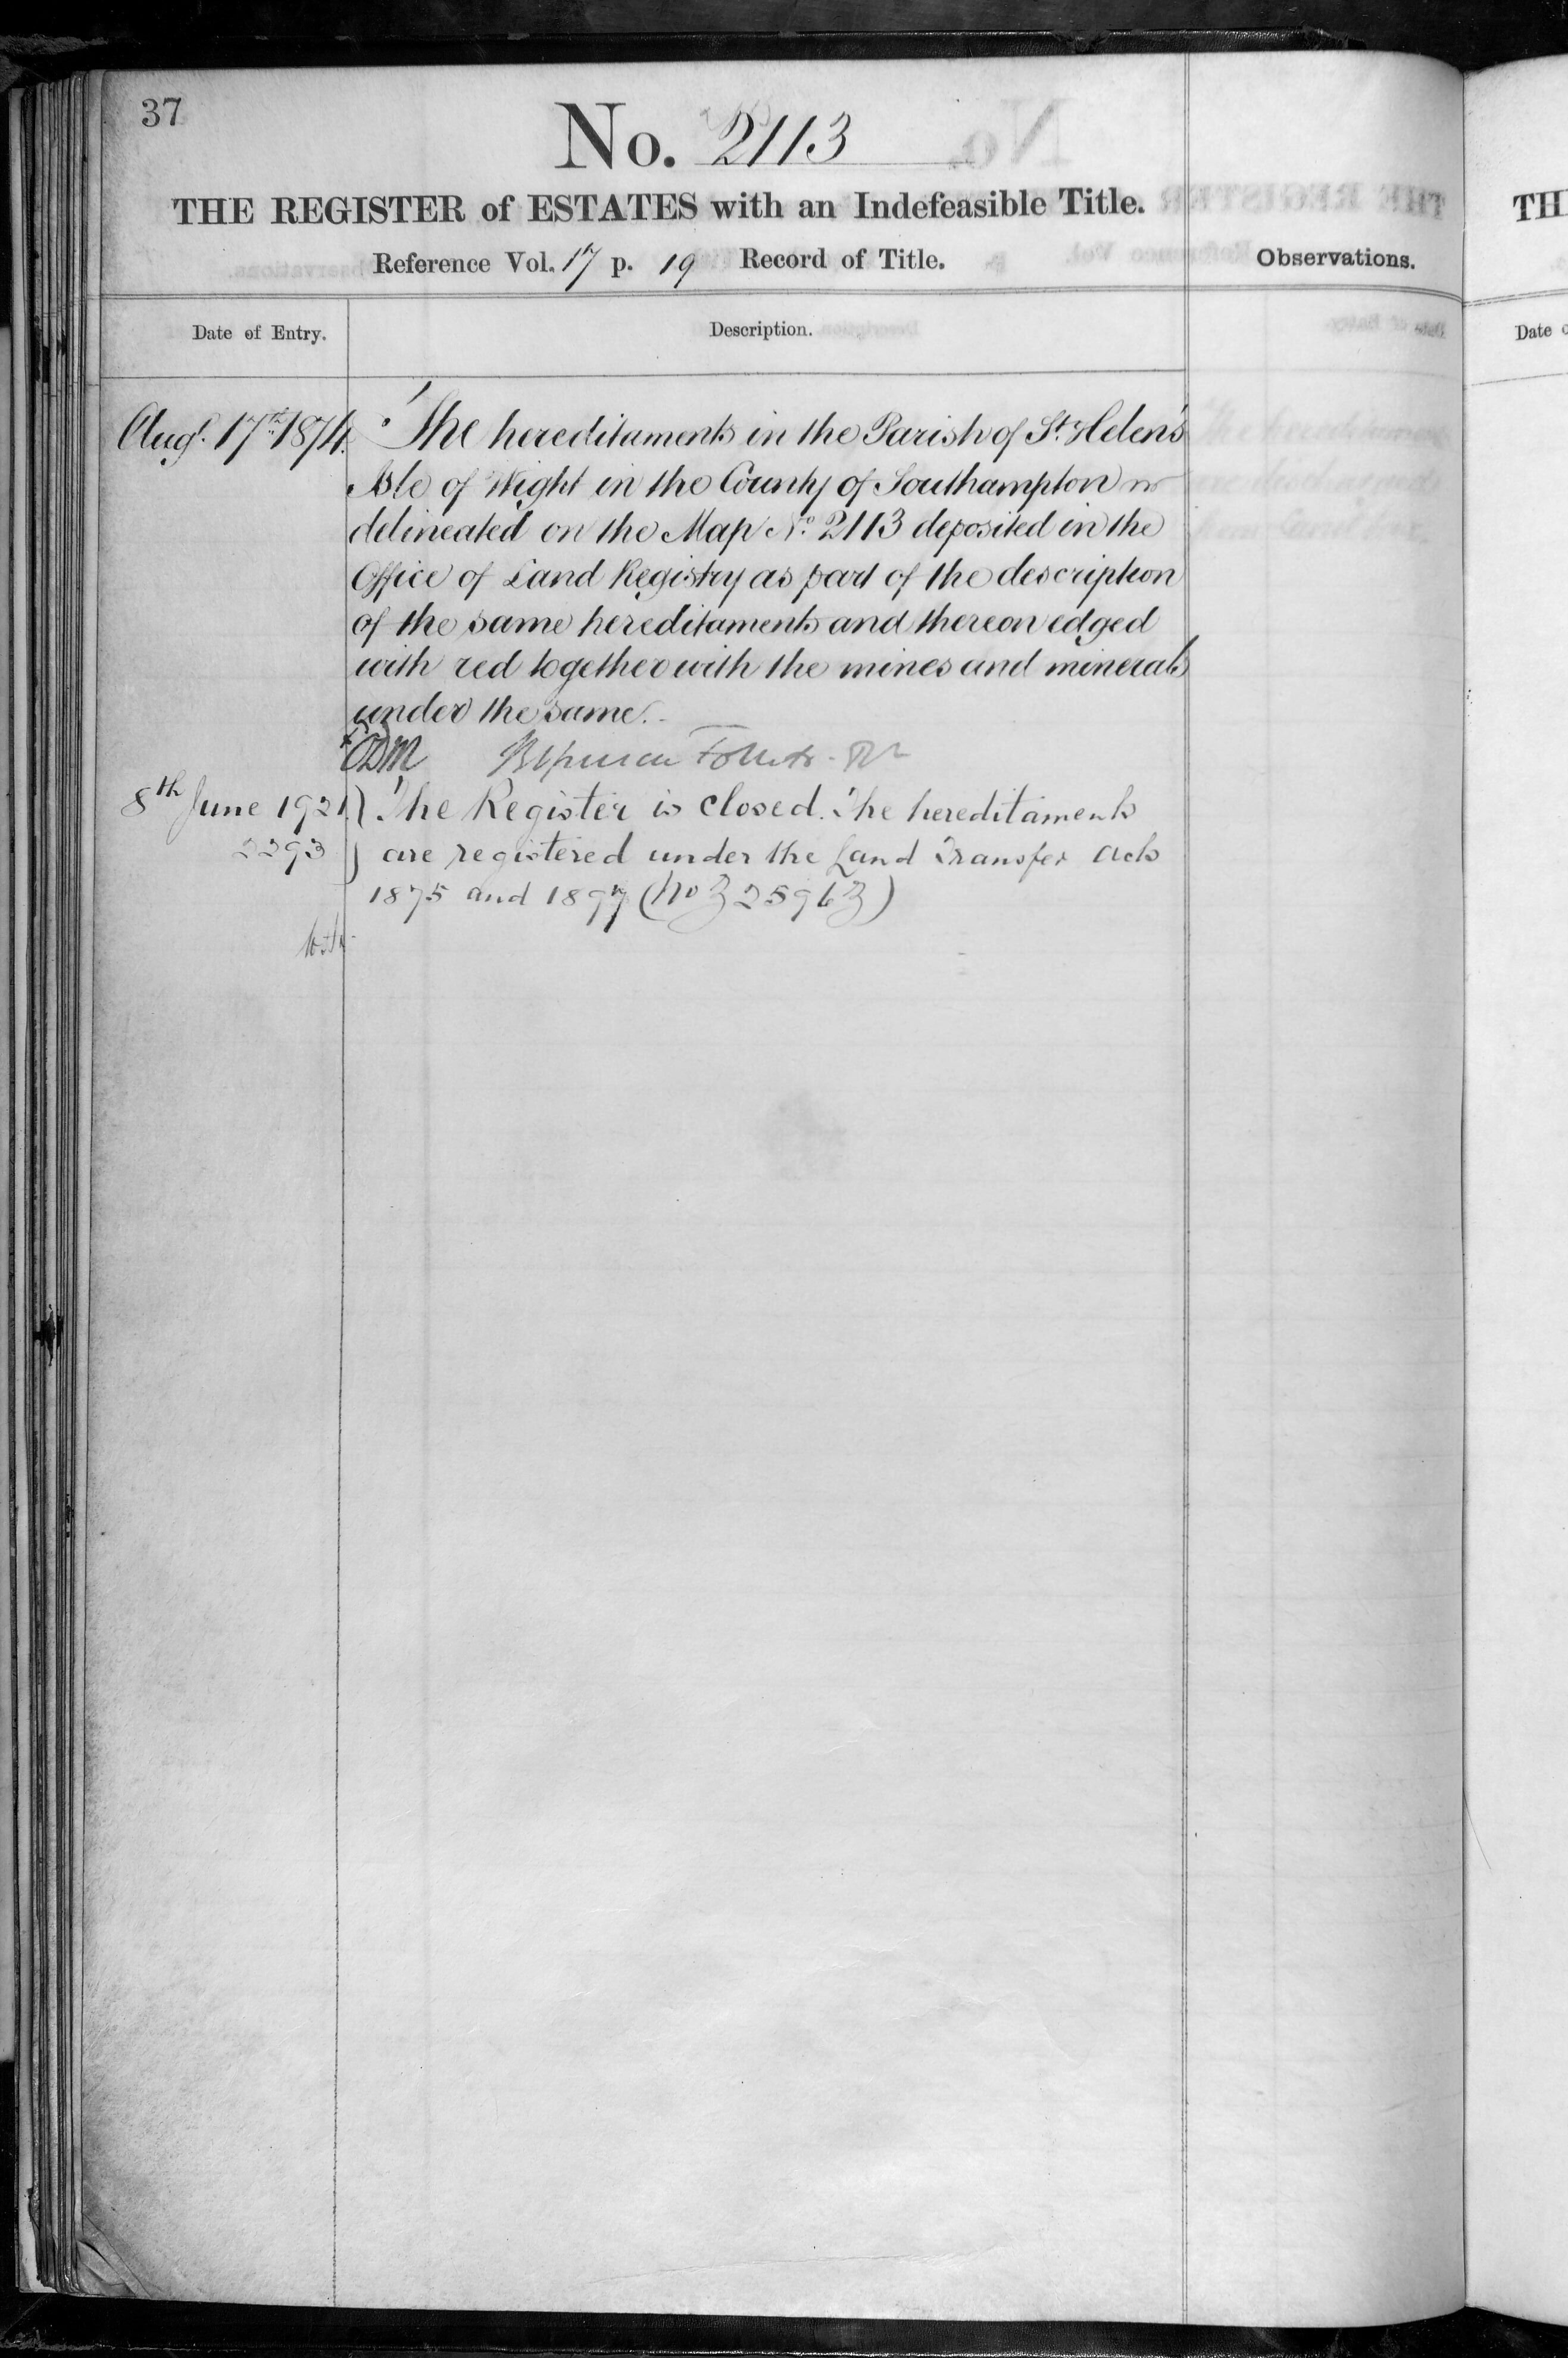 37
No. 2113
THE REGISTER of ESTATES with an Indefeasible Title.
Reference Vol. 17 p. 19 Record of Title.
Observations.
Date of Entry.
Description.
Augt. 17th 1874.
The hereditaments in the Parish of St. Helen's
Isle of Wight in the County of Southampton
delineated on the Map No. 2113 deposited in the
Office of Land Registry as part of the description
of the same hereditaments and thereon edged
with red together with the mines and minerals
under the same.
8th June 1921
2293
The Register is closed. The hereditaments
are registered under the Land Transfer Acts
1875 and 1897 (No 325963)
TH
Date